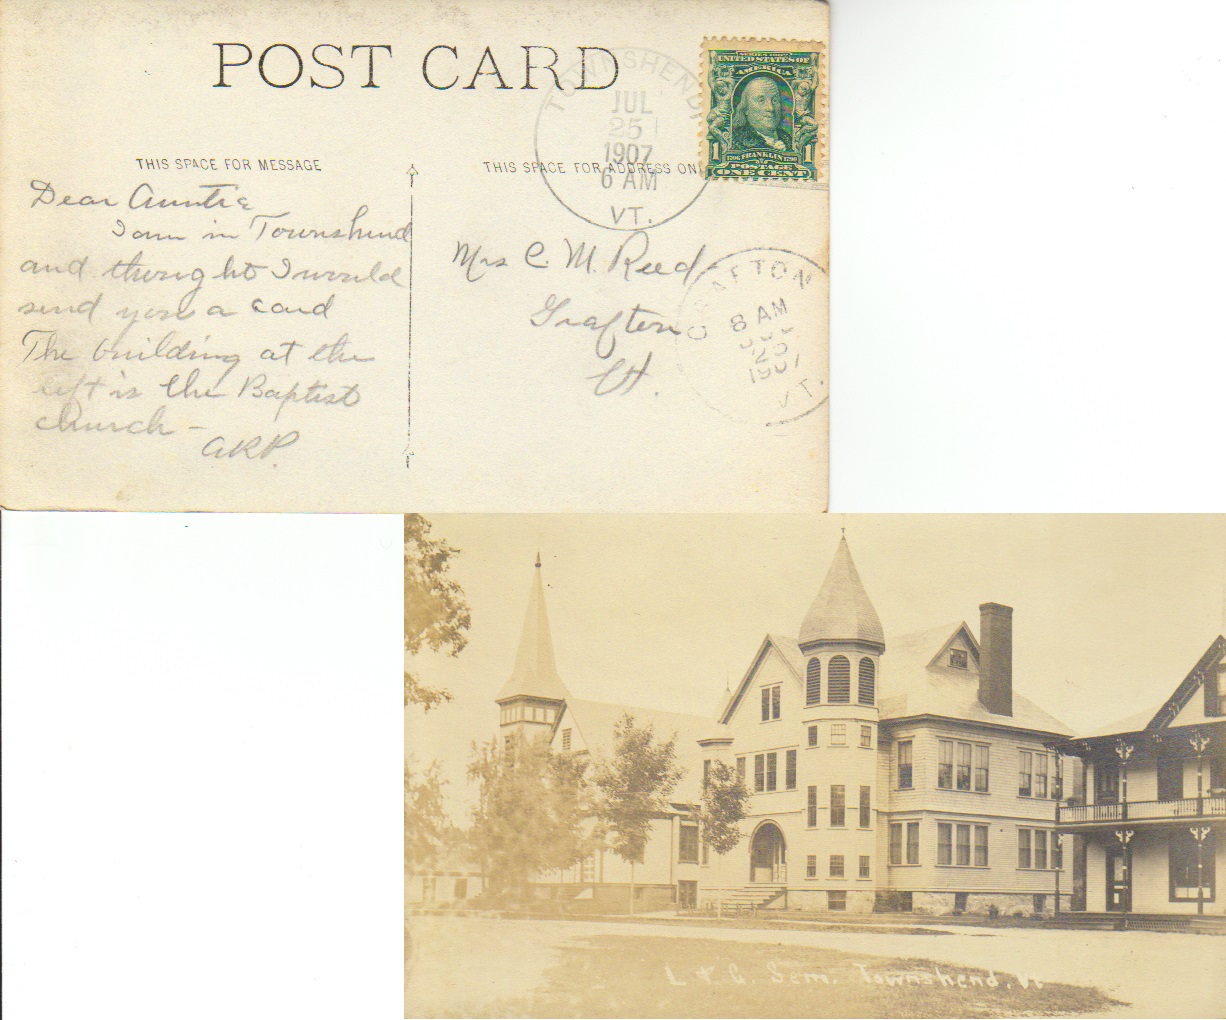 POST CARD
TOWNSHEND
JUL
25
1907
6 AM
VT.
SERIES 1902
UNITED STATES OF
AMERICA
1 1706 FRANKLIN 1790 1
POSTAGE
ONE CENT
THIS SPACE FOR MESSAGE
THIS SPACE FOR ADDRESS ON
Dear Auntie
I am in Townshend
and thought I would
send you a card
The building at the
left is the Baptist
church -
ARP.
Mrs C. M. Reed
Grafton
Vt.
GRAFTON
8 AM
JUL
25
1907
VT.
L & G. Sem. Townshend, Vt